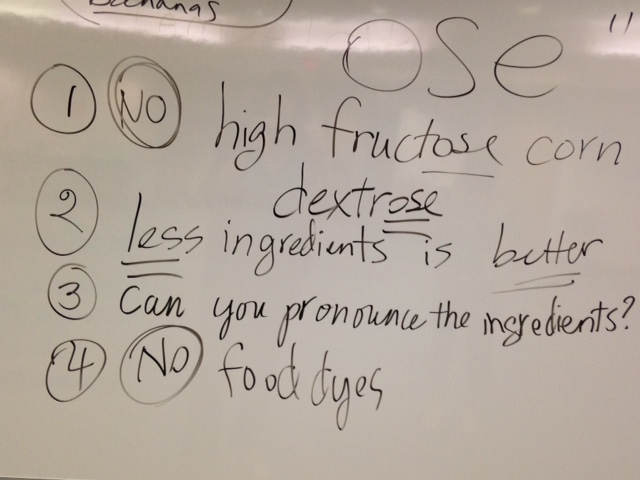 ose "
1 NO high fructose corn
dextrose
2 less ingredients is better
3 Can you pronounce the ingredients?
4 No food dyes